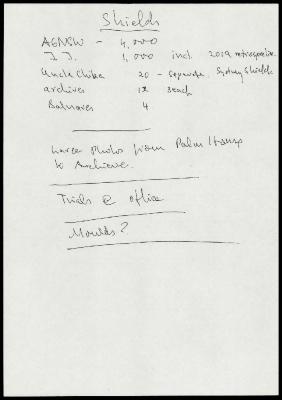 Shields
AGNSW - 4,000
J.J. 1,000 incl. 2019 retrospective
Uncle Chika 20 - separate. Sydney Shields
archives 12 each
Balnaves 4
Photos from Palm House
to Archive.
Trials @ office
Moulds?